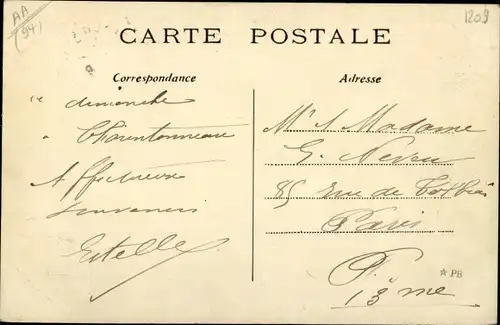 AA
(94)
1209
CARTE POSTALE
Correspondance
Adresse
ce dimanche
a Charentonneau
Affectueux
souvenirs
Estelle
Mr & Madame
G. Neveu
85 rue de Tolbiac
Paris
P.
13 eme
☆ PB